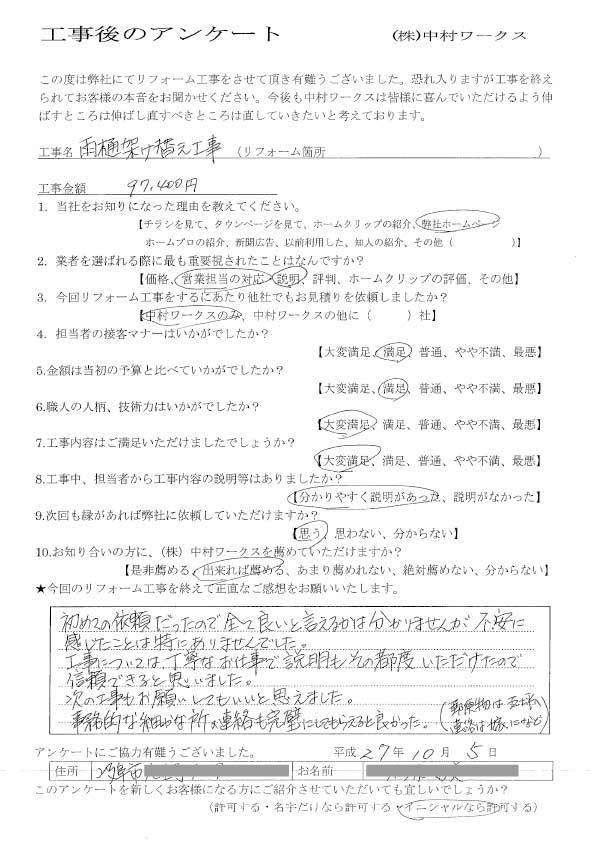 工事後のアンケート (株)中村ワークス
この度は弊社にてリフォーム工事をさせて頂き有難うございました。恐れ入りますが工事を終え
られてお客様の本音をお聞かせください。今後も中村ワークスは皆様に喜んでいただけるよう伸
ばすところは伸ばし直すべきところは直していきたいと考えております。
工事名 雨樋架け替え工事 (リフォーム箇所 )
工事金額 97,400円
1. 当社をお知りになった理由を教えてください。
【チラシを見て、タウンページを見て、ホームクリップの紹介、弊社ホームページ
ホームプロの紹介、新聞広告、以前利用した、知人の紹介、その他 ( )】
2. 業者を選ばれる際に最も重要視されたことはなんですか?
【価格、営業担当の対応、説明、評判、ホームクリップの評価、その他】
3. 今回リフォーム工事をするにあたり他社でもお見積りを依頼しましたか?
【中村ワークスのみ、中村ワークスの他に ( ) 社】
4. 担当者の接客マナーはいかがでしたか?
【大変満足、満足、普通、やや不満、最悪】
5.金額は当初の予算と比べていかがでしたか?
【大変満足、満足、普通、やや不満、最悪】
6.職人の人柄、技術力はいかがでしたか?
【大変満足、満足、普通、やや不満、最悪】
7.工事内容はご満足いただけましたでしょうか?
【大変満足、満足、普通、やや不満、最悪】
8.工事中、担当者から工事内容の説明等はありましたか?
【分かりやすく説明があった、説明がなかった】
9.次回も縁があれば弊社に依頼していただけますか?
【思う、思わない、分からない】
10.お知り合いの方に、(株) 中村ワークスを薦めていただけますか?
【是非薦める、出来れば薦める、あまり薦めれない、絶対薦めない、分からない】
★今回のリフォーム工事を終えて正直なご感想をお願いいたします。
初めての依頼だったので全て良いと言えるかは分かりませんが、不安に
感じたことは特にありませんでした。
工事については、丁寧なお仕事で説明もその都度いただけたので
信頼できると思いました。
次の工事もお願いしてもいいと思えました。
事務的な細かな所が連絡も完璧にしてもらえると良かった。(郵便物は
連絡は嫁になど)
アンケートにご協力有難うございました。 平成 27年 10月 5日
住所 お名前
このアンケートを新しくお客様になる方にご紹介させていただいても宜しいでしょうか?
(許可する・名字だけなら許可する・イニシャルなら許可する)